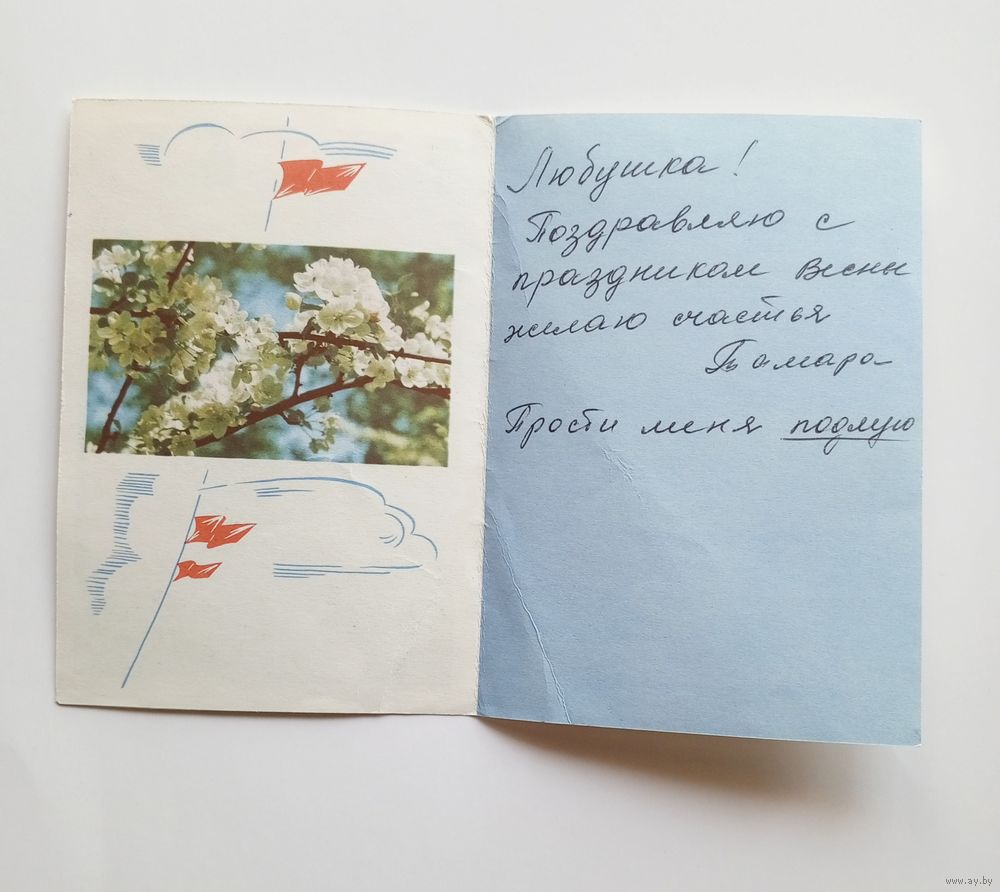 Любушка!
Поздравляю с
праздником Весны
желаю счастья
Тамара
Прости меня подлую
www.ay.by